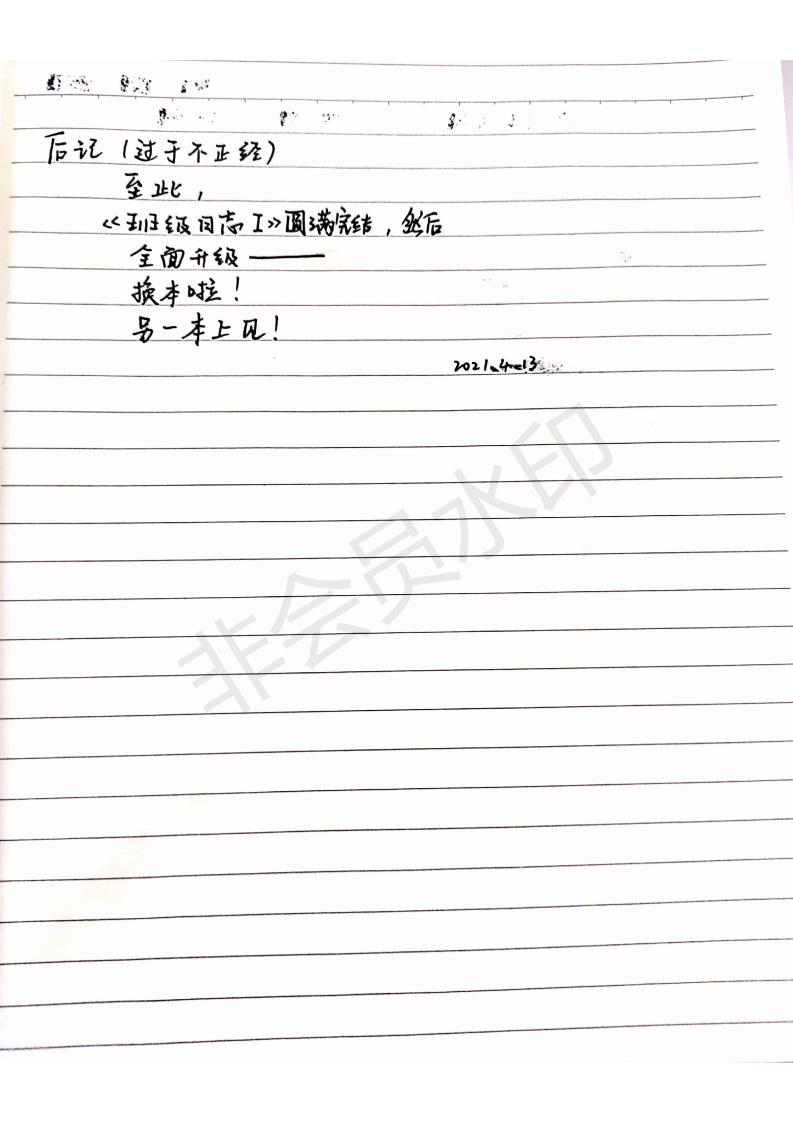 后记（过于不正经）
至此，
《班级日志I》圆满完结，然后
全面升级——
换本啦！
另一本上见！
2021.4.13
非会员水印